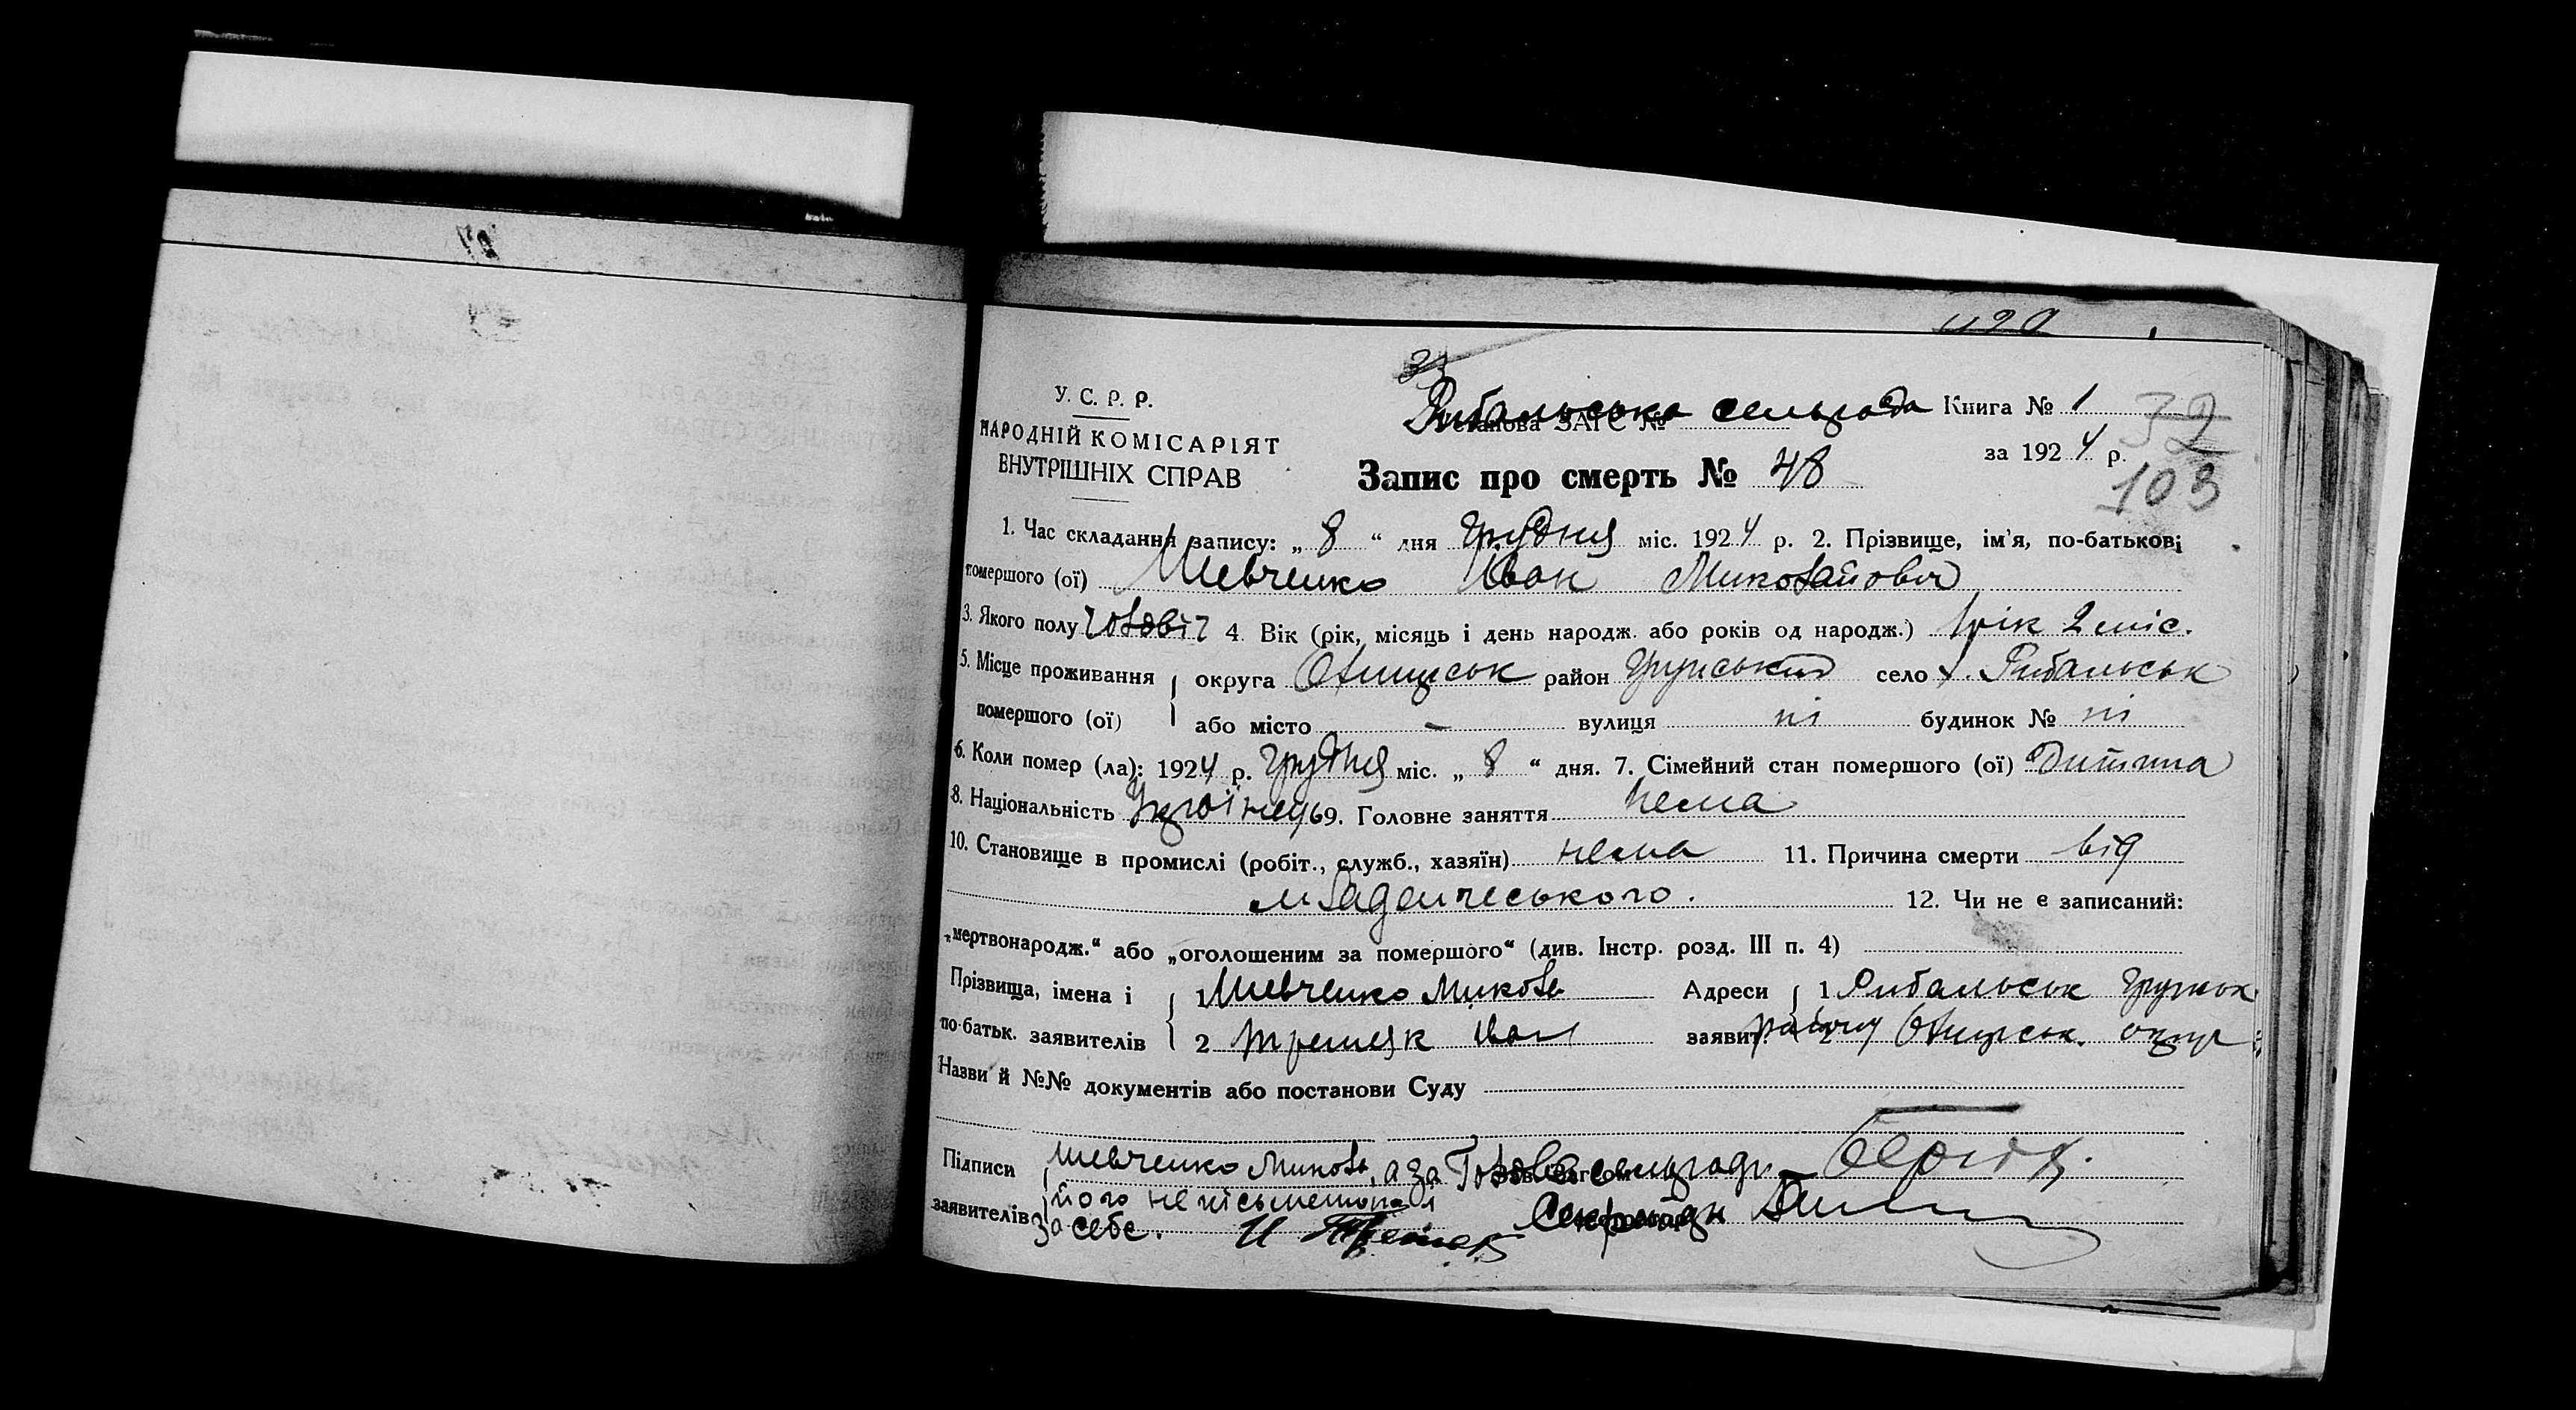 У. С. Р. Р.
НАРОДНІЙ КОМІСАРІЯТ
ВНУТРІШНІХ СПРАВ
33
Рибальська сельрада Книга № 1
Установа ЗАГС №
за 1924 р.
32
103
Запис про смерть № 48
1. Час складання запису: „ 8 “ дня Грудня міс. 1924 р. 2. Прізвище, ім'я, по-батькові
помершого (ої) Шевченко Іван Миколайович
3. Якого полу чоловіч 4. Вік (рік, місяць і день народж. або років од народж.) 1 рік 2 міс.
5. Місце проживання округа Охтирськ район Грунський село х. Рибальськ
помершого (ої) або місто — вулиця ні будинок № ні
6. Коли помер (ла): 1924 р. Грудня міс. „ 8 “ дня. 7. Сімейний стан помершого (ої) Дитина
8. Національність Українец 9. Головне заняття нема
10. Становище в промислі (робіт., служб., хазяїн) нема 11. Причина смерти від
младенческього. 12. Чи не є записаний:
„мертвонародж.“ або „оголошеним за помершого“ (див. Інстр. розд. III п. 4)
Прізвища, імена і 1 Шевченко Микола Адреси 1 Рибальськ Грунськ
по-батьк. заявителів 2 Іван заявит. 2 району Охтирськ. округ
Назви й №№ документів або постанови Суду
Підписи Шевченко Микола, а за Голова сельради
заявителів його неписьменого і Секретар
за себе. И